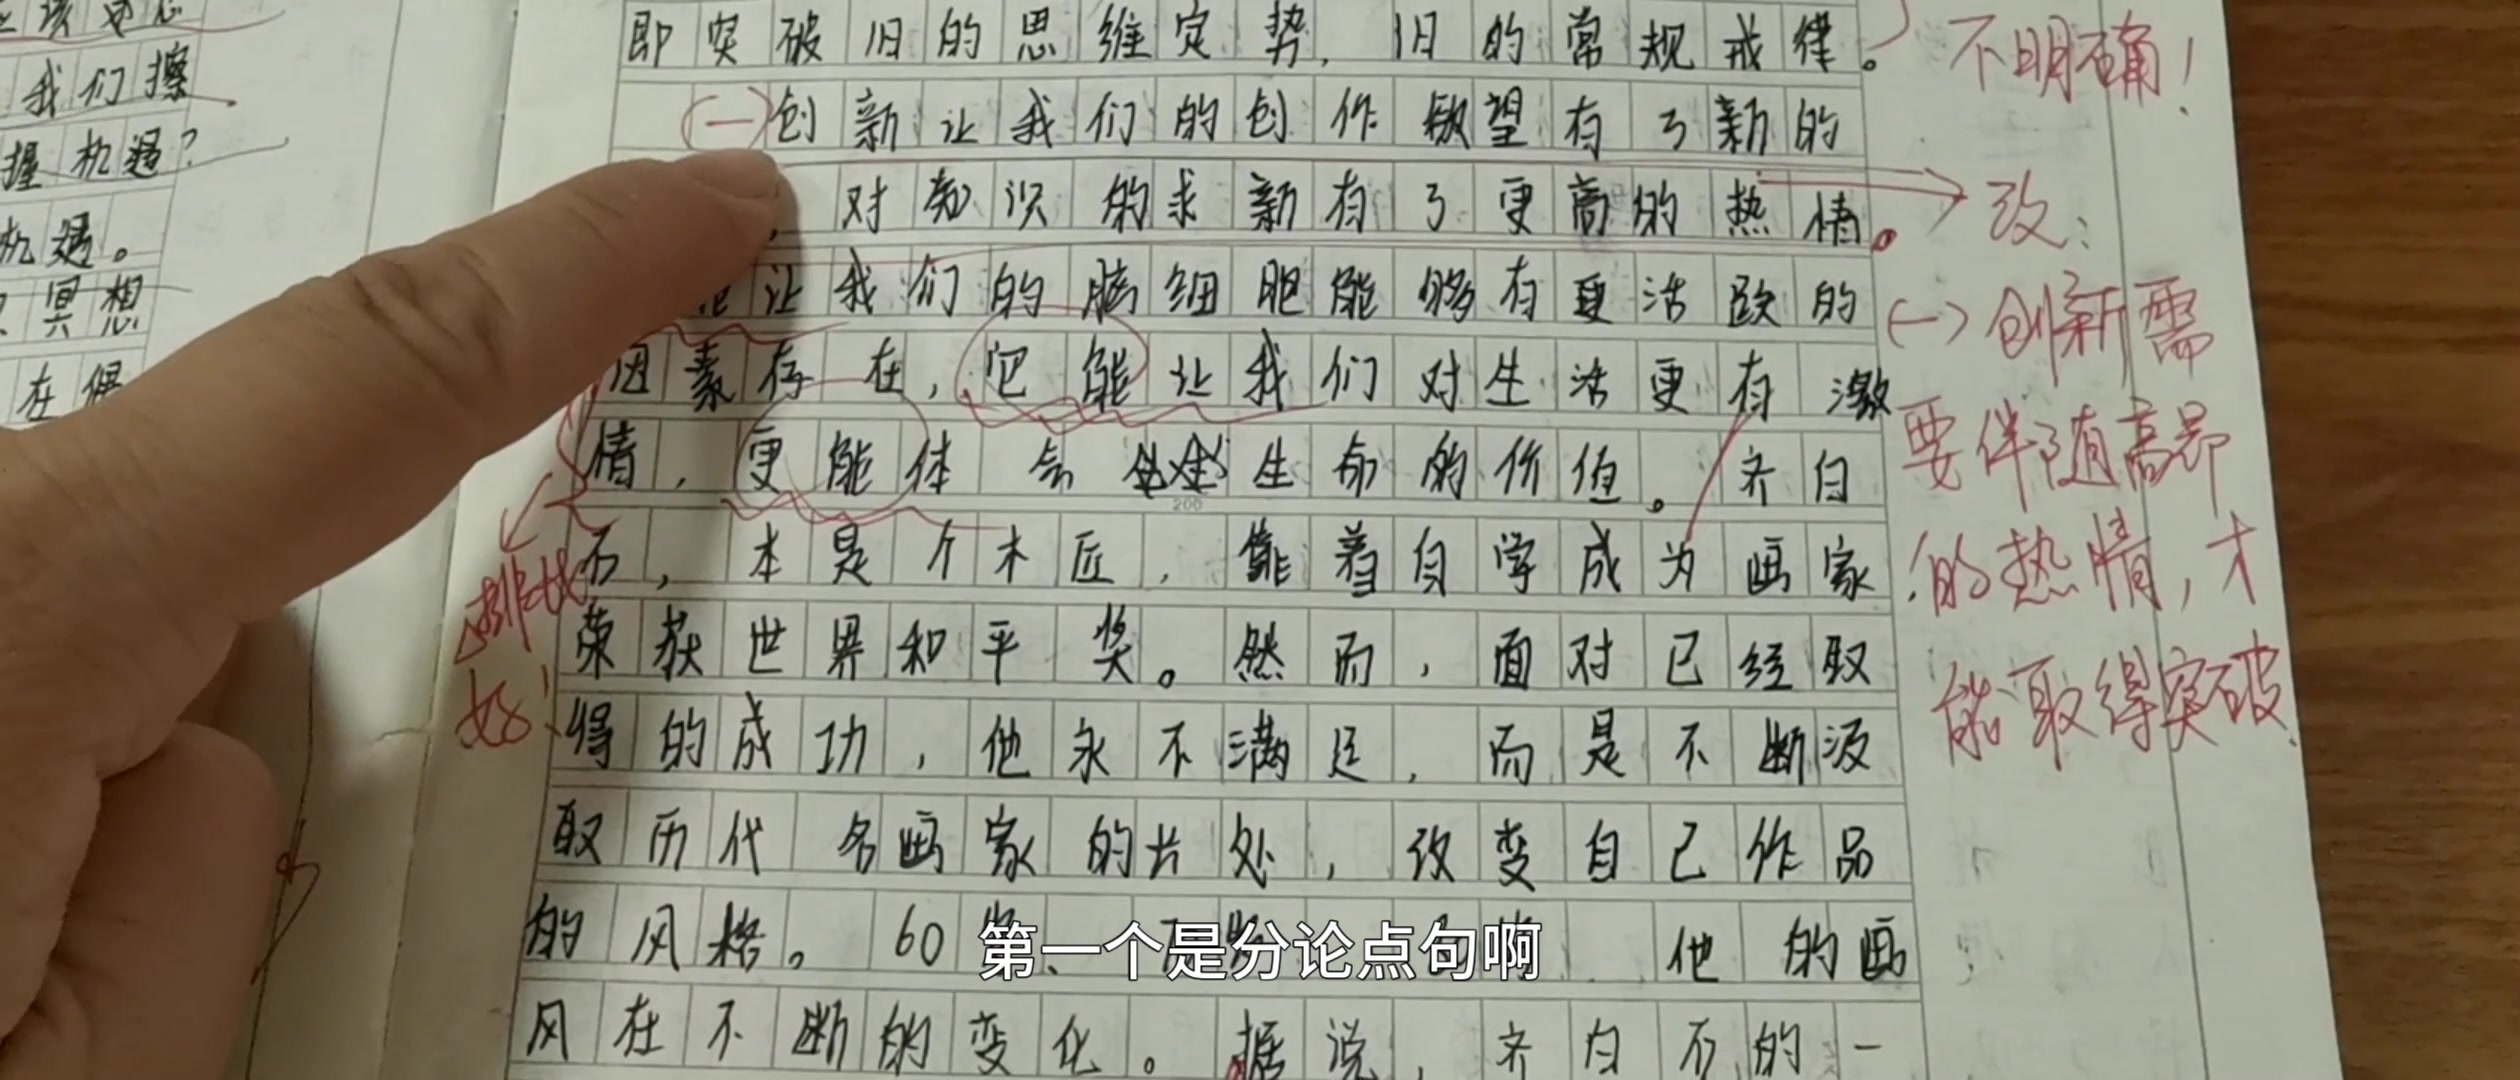 我们擦
握机遇?
机遇。
冥想
在
即突破旧的思维定势,旧的常规戒律。
(一)创新让我们的创作欲望有了新的
,对知识的求新有了更高的热情。
让我们的脑细胞能够有更活跃的
因素存在,它能让我们对生活更有激
情,更能体会生命的价值。齐白
石,本是个木匠,靠着自学成为画家
荣获世界和平奖。然而,面对已经取
得的成功,他永不满足,而是不断汲
取历代名画家的长处,改变自己作品
的风格。60岁 他的画
风在不断的变化。据说,齐白石的一
不明确!
改:
(一)创新需
要伴随高昂
的热情,才
能取得突破
排比
好!
200
第一个是分论点句啊